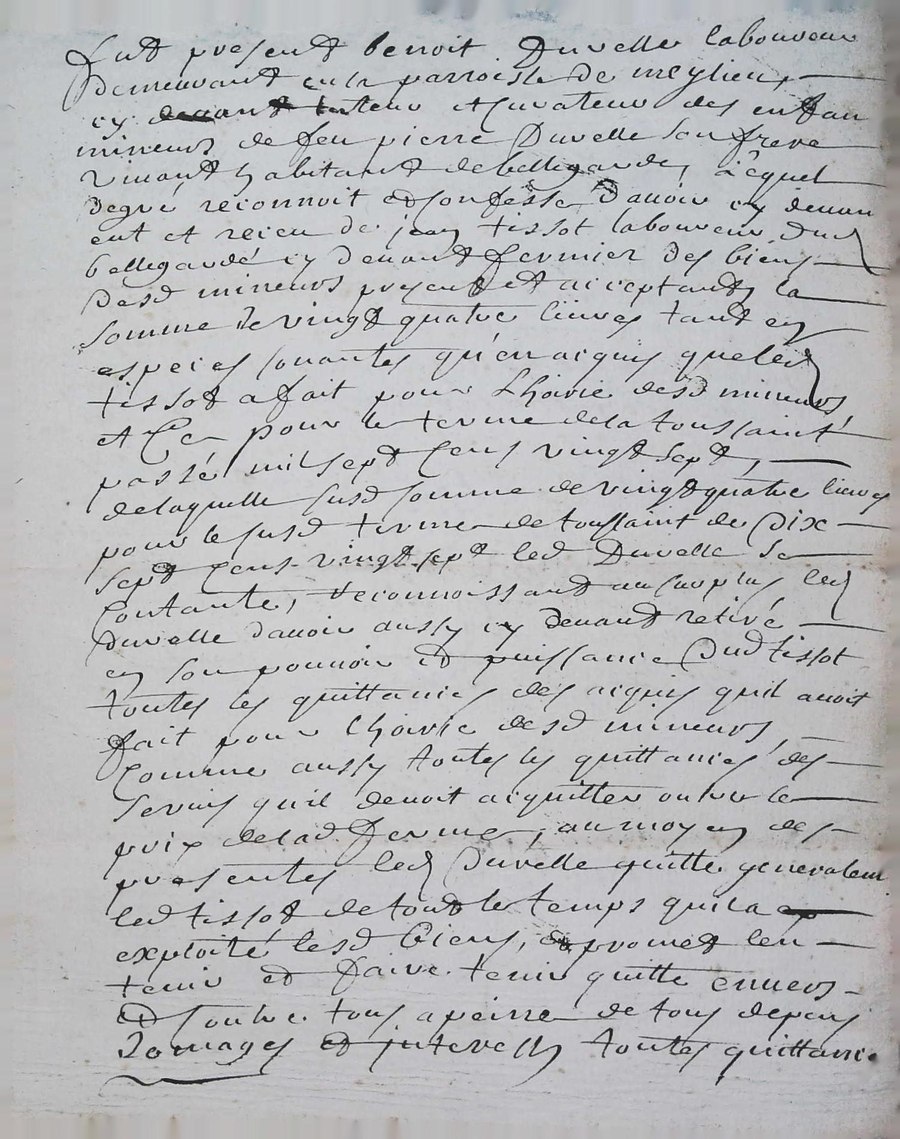 fut present benoit Duvelle laboureur
demeurant en la parroisse de meylieu,
cy devant tuteur et Curateur des enfan
mineurs de feu pierre Duvelle son frere
vivant habitant de bellegarde, Lequel
degré reconnoit et Confesse D'avoir cy devan
eut et receu de jean tissot laboureur dud
bellegarde cy devant fermier des biens
desd mineurs present et acceptant, la
somme de vingt quatre livres tant en
especes sonantes qu'en acquis que led
tissot a fait pour L'hoirie desd mineurs
et Ce pour le terme de la toussaint
passé mil sept Cens vingt sept,
de laquelle susd somme de vingt quatre livres
pour le susd terme de toussaint de Dix
sept Cens vingt sept led Duvelle se
Contante, reconnoissant au surplus led
Duvelle d'avoir aussy cy devant retiré
en son pouvoir et puissance Dud tissot
toutes les quittances des acquis qu'il avoit
fait pour L'hoirie desd mineurs,
Comme aussy toutes les quittances des
servis qu'il devoit acquitter outre le
prix de lad ferme, au moyen des
presentes led Duvelle quitte generalem
led tissot de tout le temps qu'il a
exploité lesd biens, et promet l'en
tenir et faire tenir quitte envers
et Contre tous a peinne de tous depens
Domages et interests toutes quittance